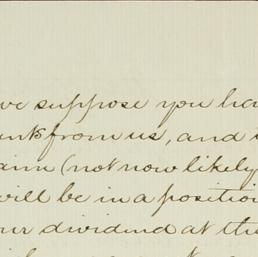 we suppose you ha
from us, and
(not now likely
will be in a position
our dividend at the